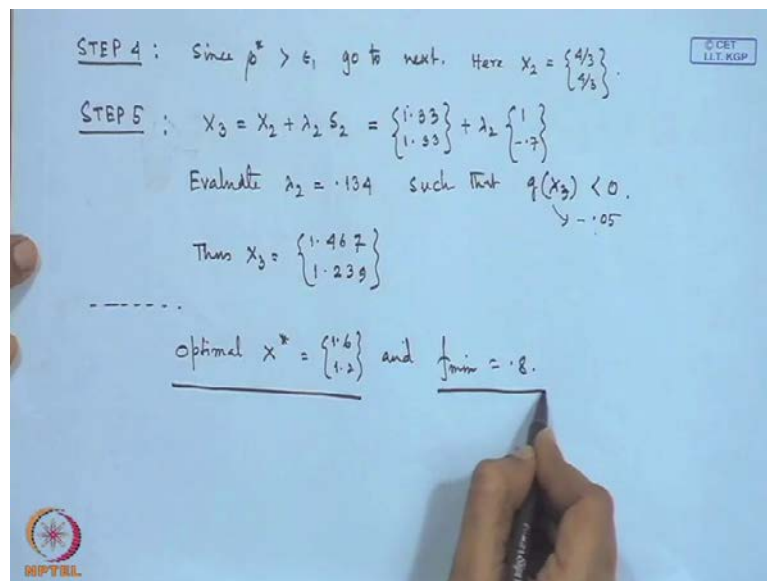 STEP 4 : Since β* > ε₁ go to next. Here X₂ = {4/3 4/3}.
© CET
I.I.T. KGP
STEP 5 : X₃ = X₂ + λ₂ S₂ = {1.33 1.33} + λ₂ {1 -.7}
Evaluate λ₂ = .134 such that g(X₃) < 0.
↘ -.05
Thus X₃ = {1.467 1.239}
-------.
Optimal X* = {1.6 1.2} and fmin = .8.
NPTEL